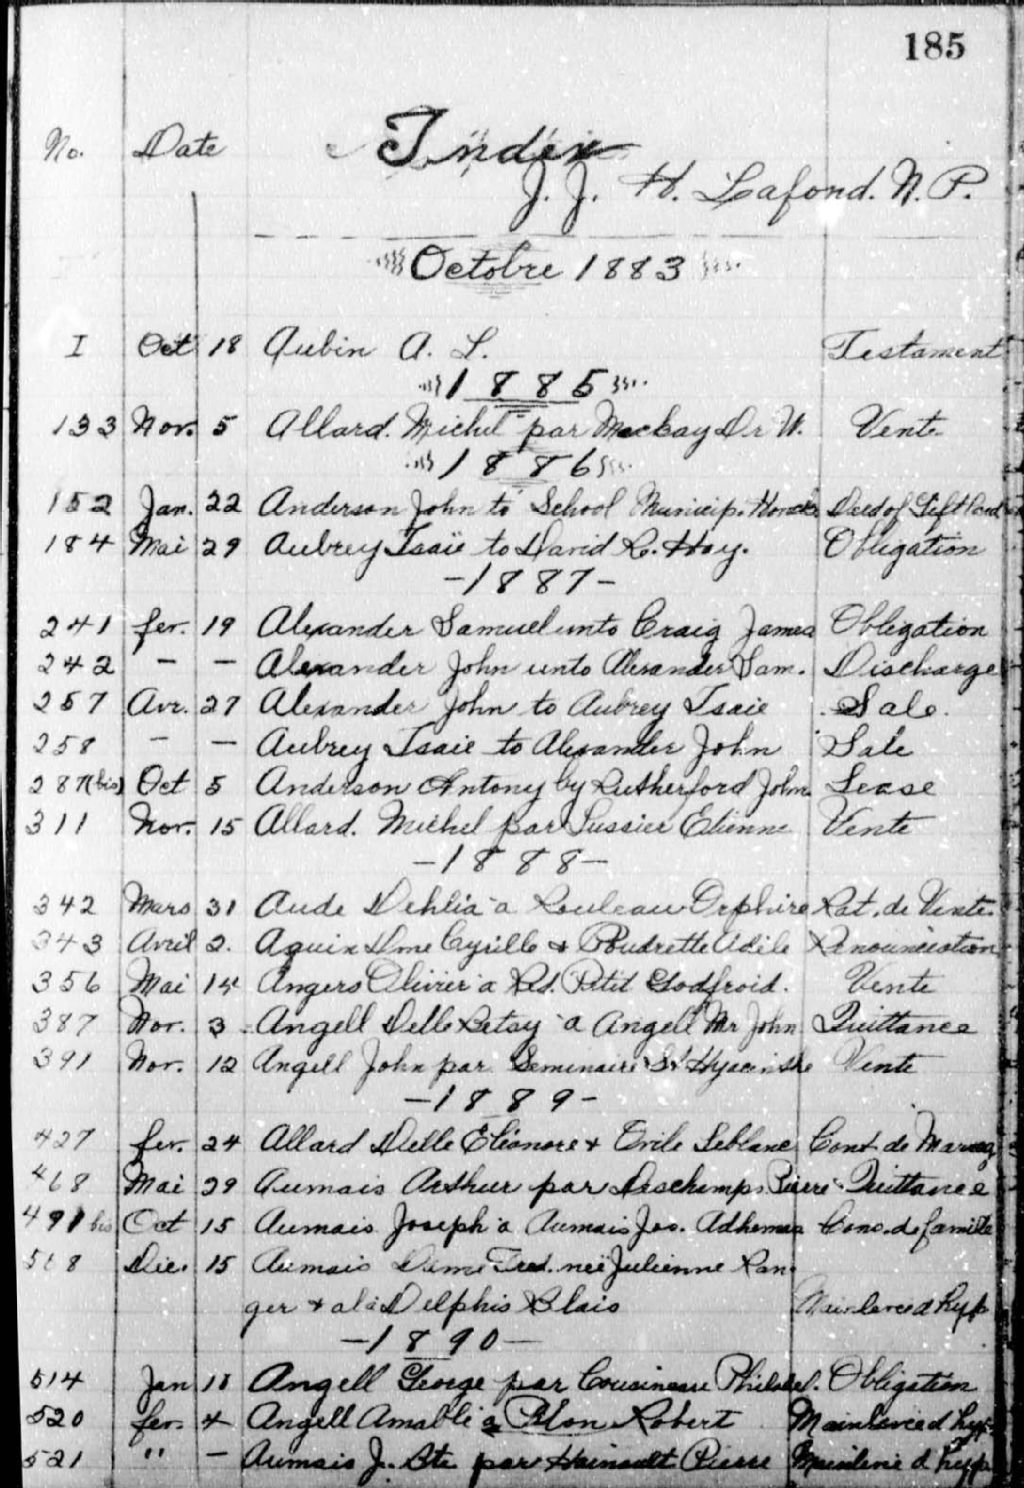 185
No. Date Index
J. J. H. Lafond. N. P.
Octobre 1883
I Oct 18 Aubin A. L. Testament
1885
133 Nov. 5 Allard. Michel par Mackay Dr W. Vente
1886
152 Jan. 22 Anderson John to School Municip. Deed of Gift Land
184 Mai 29 Aubrey Isaïe to David R. Hay. Obligation
-1887-
241 fev. 19 Alexander Samuel unto Craig James Obligation
242 - - Alexander John unto Alexander Sam. Discharge
257 Avr. 27 Alexander John to Aubrey Isaie Sale.
258 - - Aubrey Isaie to Alexander John Sale
287(bis) Oct 5 Anderson Antony by Rutherford John Lease
311 Nov. 15 Allard. Michel par Lussier Etienne Vente
-1888-
342 Mars 31 Aude Dehlia à Rouleau Orphire Rat. de Vente.
343 Avril 2. Aquin Dme Cyrille & Poudrette Adile Renonciation
356 Mai 14 Angers Olivier à Rd. Petit Godfroid. Vente
387 Nov. 3 Angell Delle Betsy à Angell Mr John Quittance
391 Nov. 12 Angell John par Seminaire St Hyacinthe Vente
-1889-
427 fev. 24 Allard Delle Eléonore & Ovile Leblanc Cont de Mariag
468 Mai 29 Aumais Arthur par Deschamps Pierre Quittance
491 bis Oct 15 Aumais Joseph à Aumais Jos. Adhemar Cons. de famille
508 Dec. 15 Aumais Dame Fred. neë Julienne Ran
ger & al à Delphis Blais Mainlevee d hyp
-1890-
514 Jan 11 Angell George par Cousineau Philadel. Obligation
520 fev. 4 Angell Amable à Robert Mainlevee d hyp
521 " - Aumais J. Bte par Hainault Pierre Mainlevee d hyp